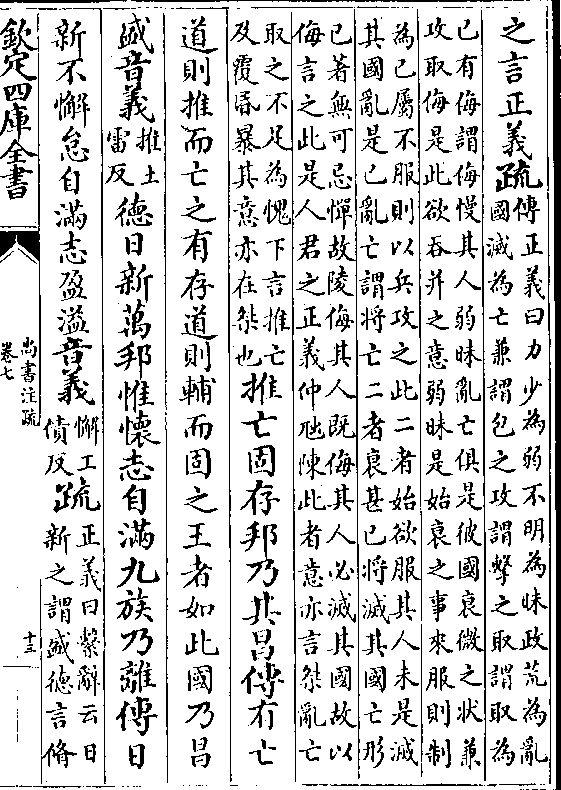 之言正義疏傳正義曰力少為弱不明為昧政荒為亂
國滅為亡兼謂包之攻謂擊之取謂取為
已有侮謂侮慢其人弱昧亂亡俱是彼國衰微之狀兼
攻取侮是此欲吞并之意弱昧是始衰之事來服則制
為已屬不服則以兵攻之此二者始欲服其人未是滅
其國亂是已亂亡謂將亡二者衰甚已將滅其國亡形
已著無可忌憚故陵侮其人既侮其人必滅其國故以
侮言之此是人君之正義仲虺陳此者意亦言桀亂亡
取之不足為愧下言推亡
及覆昏暴其意亦在桀也
推亡固存邦乃其昌傳有亡
道則推而亡之有存道則輔而固之王者如此國乃昌
盛音義推土
雷反
德日新萬邦惟懷志自滿九族乃離傳日
新不懈怠自滿志盈溢音義懈工
債反
疏正義曰繫辭云日
新之謂盛德言脩
欽定四庫全書
尚書注疏
卷七
十三